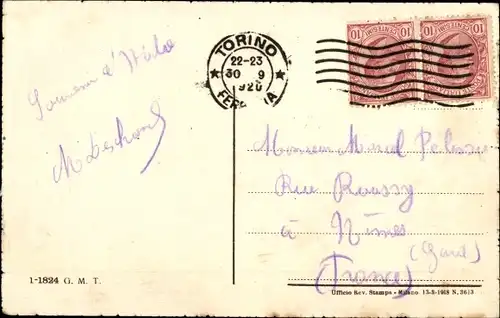 TORINO
22-23
30 9
1920
FERROVIA
10 CENTESIMI 10
10 CENTESIMI 10
Souvenir d'Italie
Monsieur Marcel
Rue Roussy
à Nîmes
(Gard)
(France)
1-1824 G. M. T.
Ufficio Rev. Stampa - Milano 13-3-1918 N. 2613